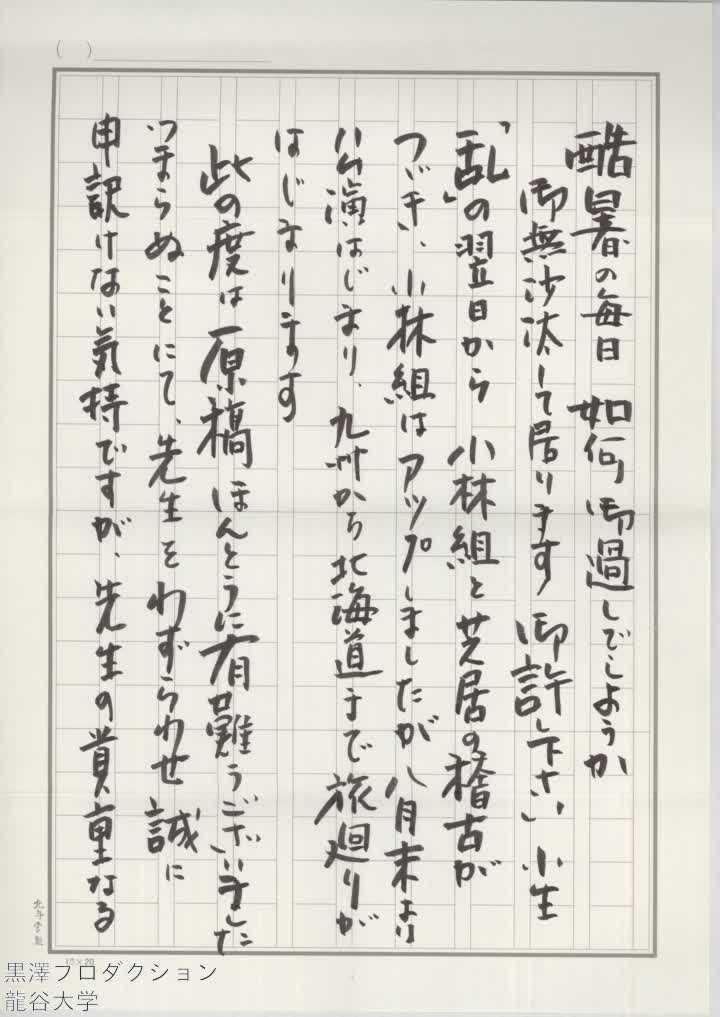 酷暑の毎日 如何御過しでしょうか
御無沙汰して居ります 御許し下さい 小生
「乱」の翌日から 小林組と芝居の稽古が
つづき、小林組はアップしましたが 八月末より
公演はじまり、九州から北海道まで旅廻りが
はじまります
此の度は 原稿 ほんとうに有難うございました
つまらぬことにて、先生を わずらわせ 誠に
申訳けない気持ですが、先生の貴重なる
10×20
黒澤プロダクション
龍谷大学